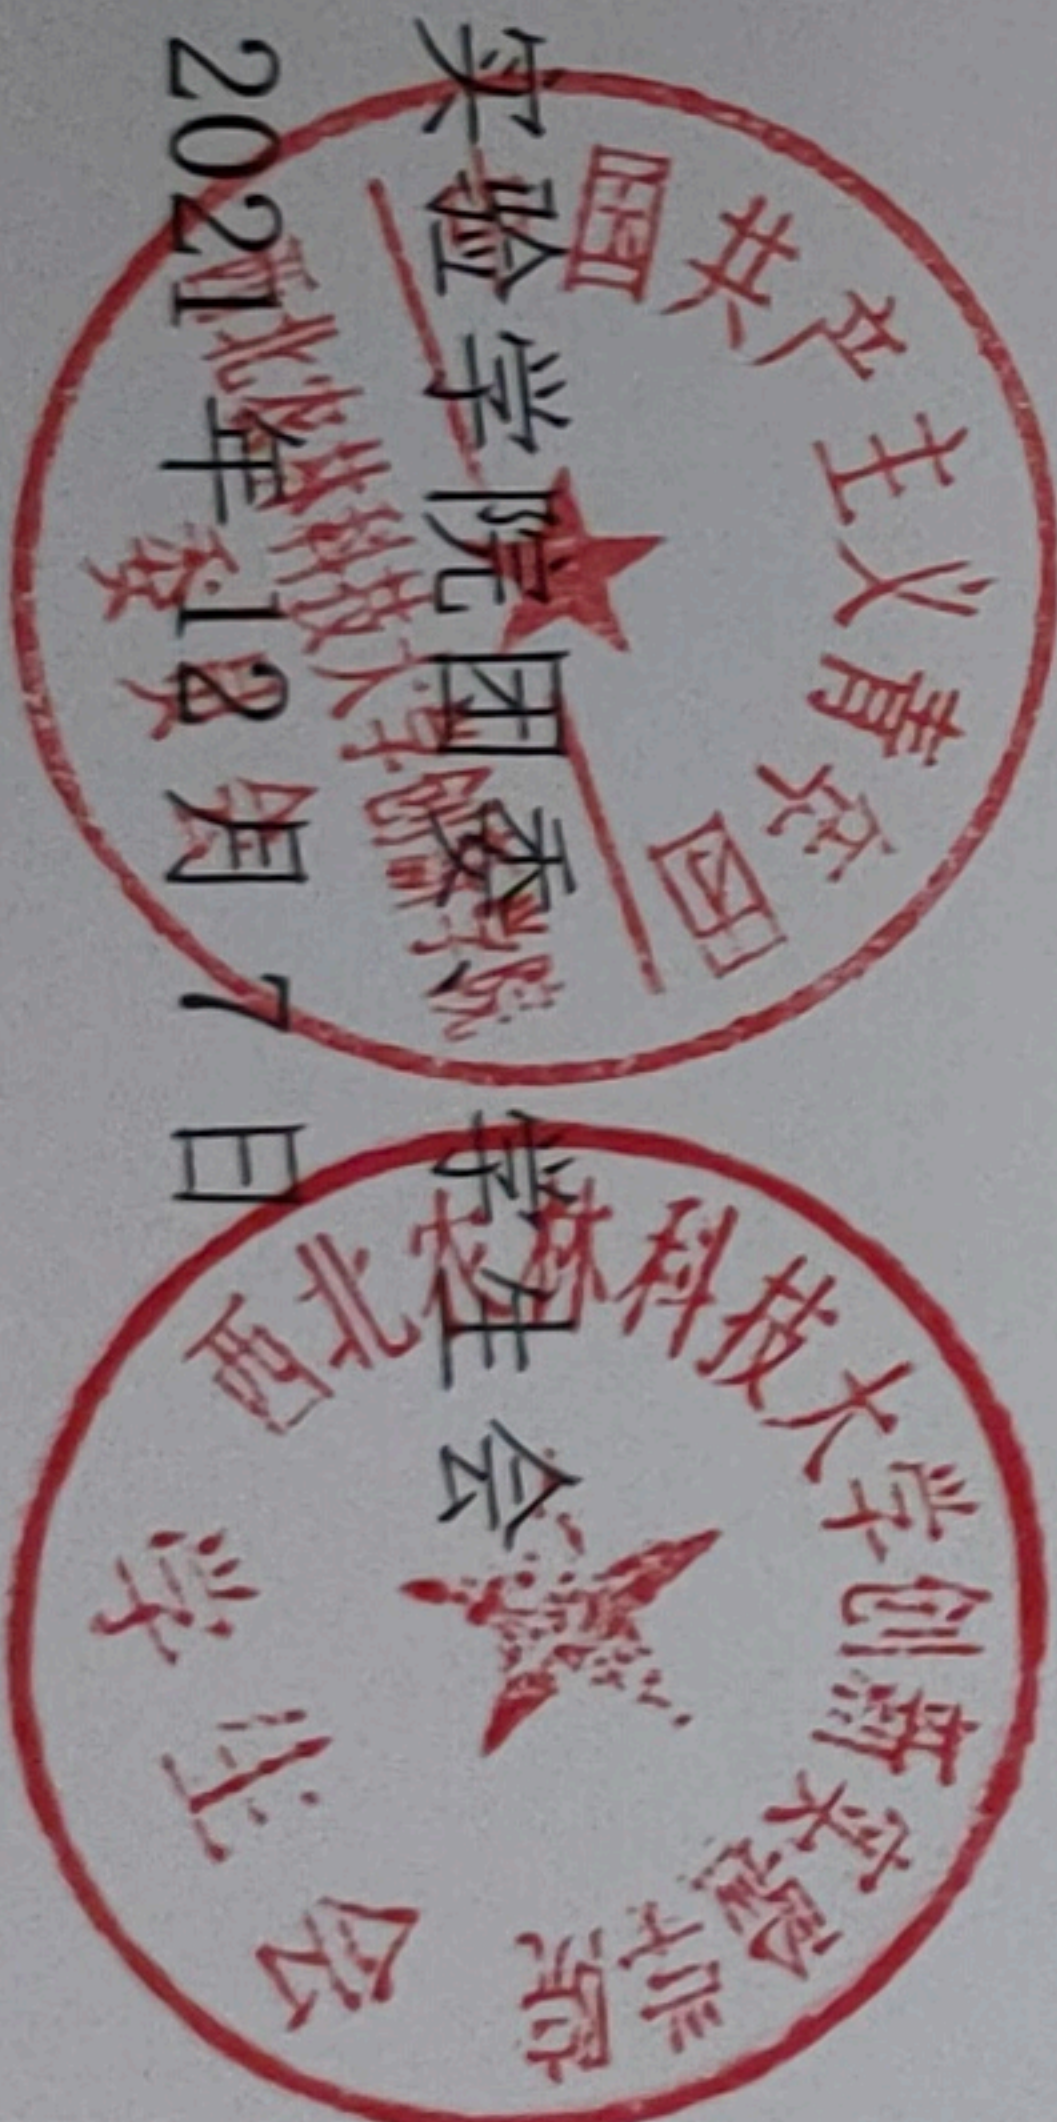 实验学院团委 学生会
2021年12月7日
国共产主义青年团
西北农林科技大学创新实验学院
委员会
西北农林科技大学创新实验学院
学生会